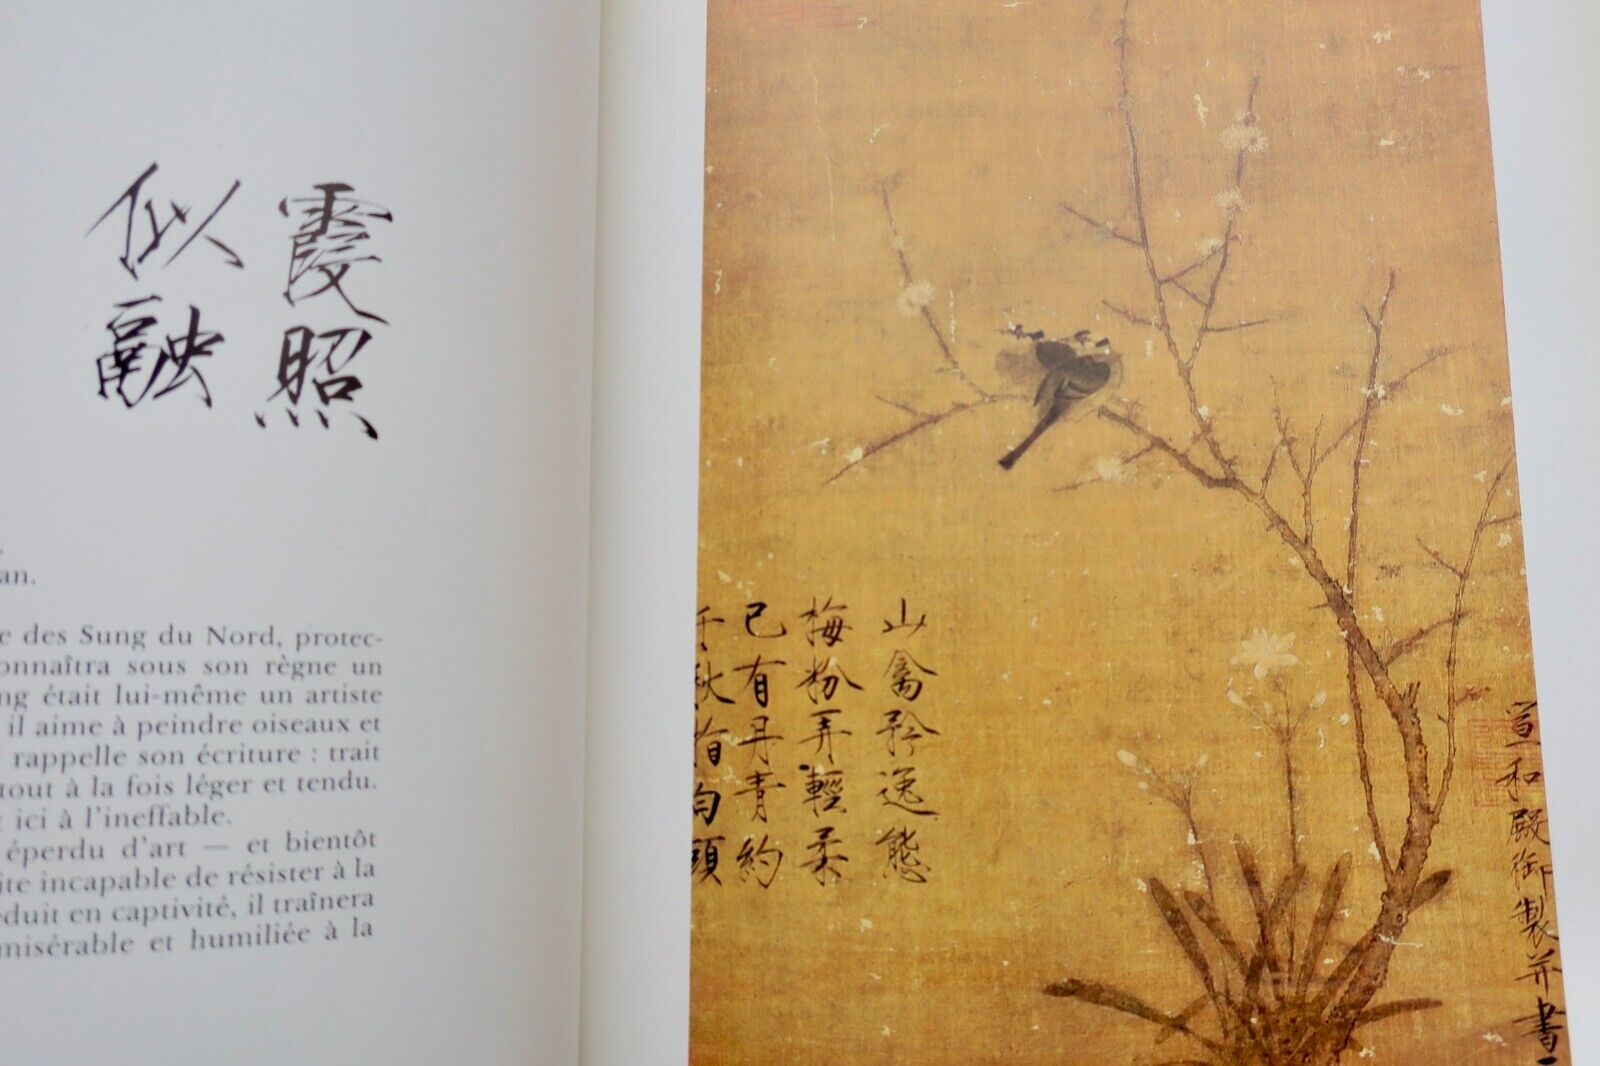 霞照
似融
an.
e des Sung du Nord, protec-
onnaîtra sous son règne un
ng était lui-même un artiste
il aime à peindre oiseaux et
rappelle son écriture : trait
tout à la fois léger et tendu.
ici à l'ineffable.
éperdu d'art — et bientôt
ite incapable de résister à la
éduit en captivité, il traînera
misérable et humiliée à la
山禽矜逸態
梅粉弄輕柔
已有丹青約
千秋指白頭
宣和殿御製并書